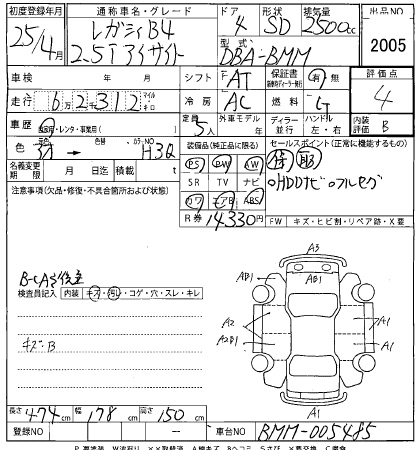 初度登録年月 通称車名・グレード ドア 形状 排気量 出品NO
25/4月 レガシィB4 4 SD 2500cc 2005
2.5i アイサイト 型式 DBA-BMM
車検 年 月 シフト FAT 保証書 有 無 評価点
走行 6万2312 マイル キロ 冷房 AC 燃料 G 4
車歴 自家用・レンタ・事業用( ) 定員 5人 外車モデル 年 ディーラー 並行 ハンドル 左・右 内装評価 B
色 替 色替 カラーNO H3Q 装備品(純正品に限る) セールスポイント(正常に機能するもの)
名義変更期限 月 日迄 積載 t PS PW AW
注意事項(欠品・修復・不具合箇所および状態) SR TV ナビ
○HDDナビ ○フルセグ
カワ エアB ABS
R券 14330円 FW キズ・ヒビ割・リペア跡・X要
検査員記入 内装 キズ・汚れ・コゲ・穴・スレ・キレ
キズ・B
A3
AB1 AB1 AB1
A2 A1
A2B1 A1
A1
長さ 474cm 幅 178cm 高さ 150cm
登録NO ー 車台NO BMM-005485